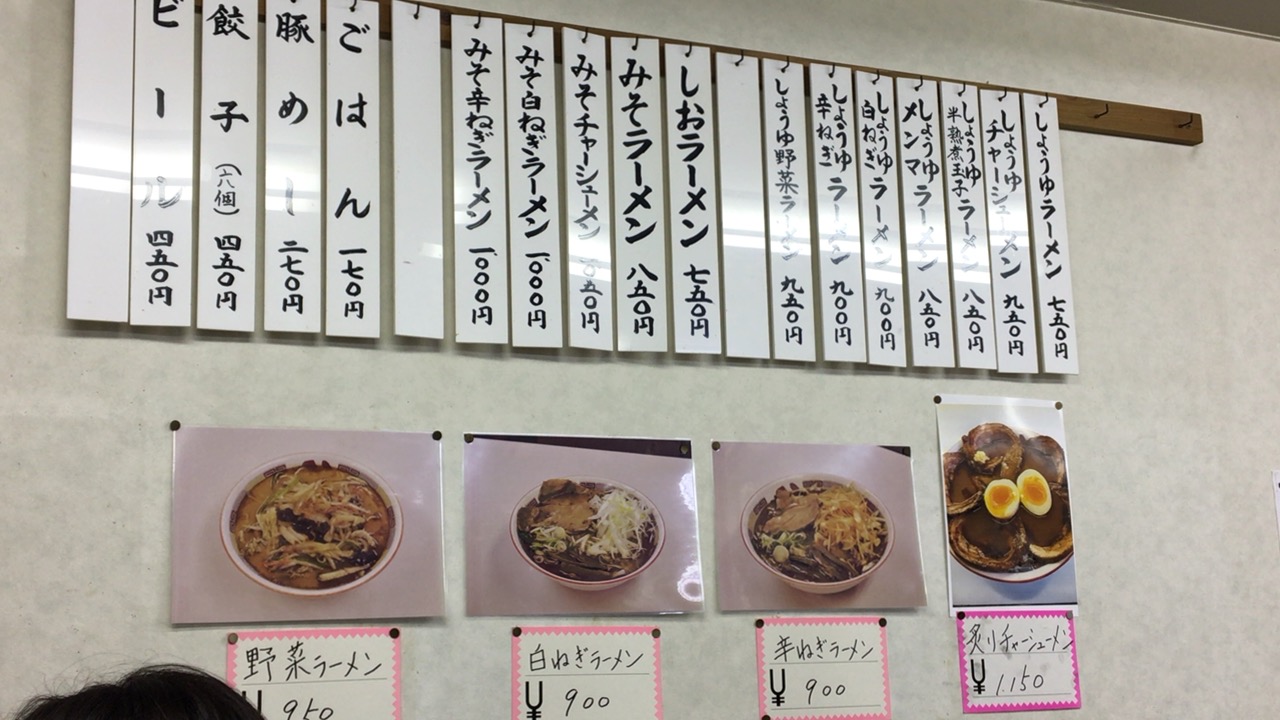 しょうゆラーメン 七五〇円
しょうゆチャーシューメン 九五〇円
しょうゆ半熟煮玉子ラーメン 八五〇円
しょうゆメンマラーメン 八五〇円
しょうゆ白ねぎラーメン 九〇〇円
しょうゆ辛ねぎラーメン 九〇〇円
しょうゆ野菜ラーメン 九五〇円
しおラーメン 七五〇円
みそラーメン 八五〇円
みそチャーシューメン 一〇五〇円
みそ白ねぎラーメン 一〇〇〇円
みそ辛ねぎラーメン 一〇〇〇円
ごはん 一七〇円
豚めし 二七〇円
餃子(六個) 四五〇円
ビール 四五〇円
野菜ラーメン
¥950
白ねぎラーメン
¥900
辛ねぎラーメン
¥900
炙りチャーシューメン
¥1.150